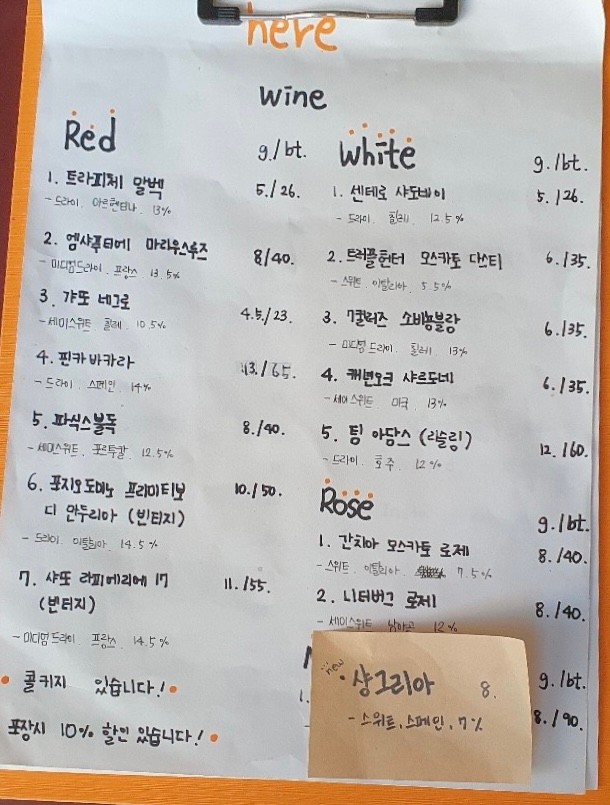 here
wine
Red g./bt.
1. 트라피체 말벡 5./26.
- 드라이. 아르헨티나. 13%
2. 엠샤푸티에 마리우스루즈 8/40.
- 미디엄드라이. 프랑스. 13.5%
3. 갸또 네그로 4.5./23.
- 세미스위트 칠레. 10.5%
4. 핀카바카라 13./65.
- 드라이. 스페인. 14%
5. 파식스불독 8./40.
- 세미스위트. 포르투갈. 12.5%
6. 포지오도미노 프리미티보 10./50.
디 만두리아 (빈티지)
- 드라이. 이탈리아. 14.5%
7. 샤또 라피메리에 17 11./55.
(빈티지)
- 미디엄드라이. 프랑스. 14.5%
콜키지 있습니다!
포장시 10% 할인 있습니다!
White g./bt.
1. 센테로 샤도네이 5./26.
- 드라이. 칠레. 12.5%
2. 트러플헌터 모스카토 다스티 6./35.
- 스위트. 이탈리아. 5.5%
3. 7컬러즈 소비뇽블랑 6./35.
- 미디엄 드라이. 칠레. 13%
4. 캐년오크 샤르도네 6./35.
- 세미스위트 미국. 13%
5. 팀 아담스 (리슬링) 12./60.
- 드라이. 호주. 12%
Rose g./bt.
1. 간치아 모스카토 로제 8./40.
- 스위트. 이탈리아. 7.5%
2. 니더버그 로제 8./40.
- 세미스위트 남아공 12%
g./bt.
1. 8./90.
new
샹그리아 8.
- 스위트. 스페인. 7%